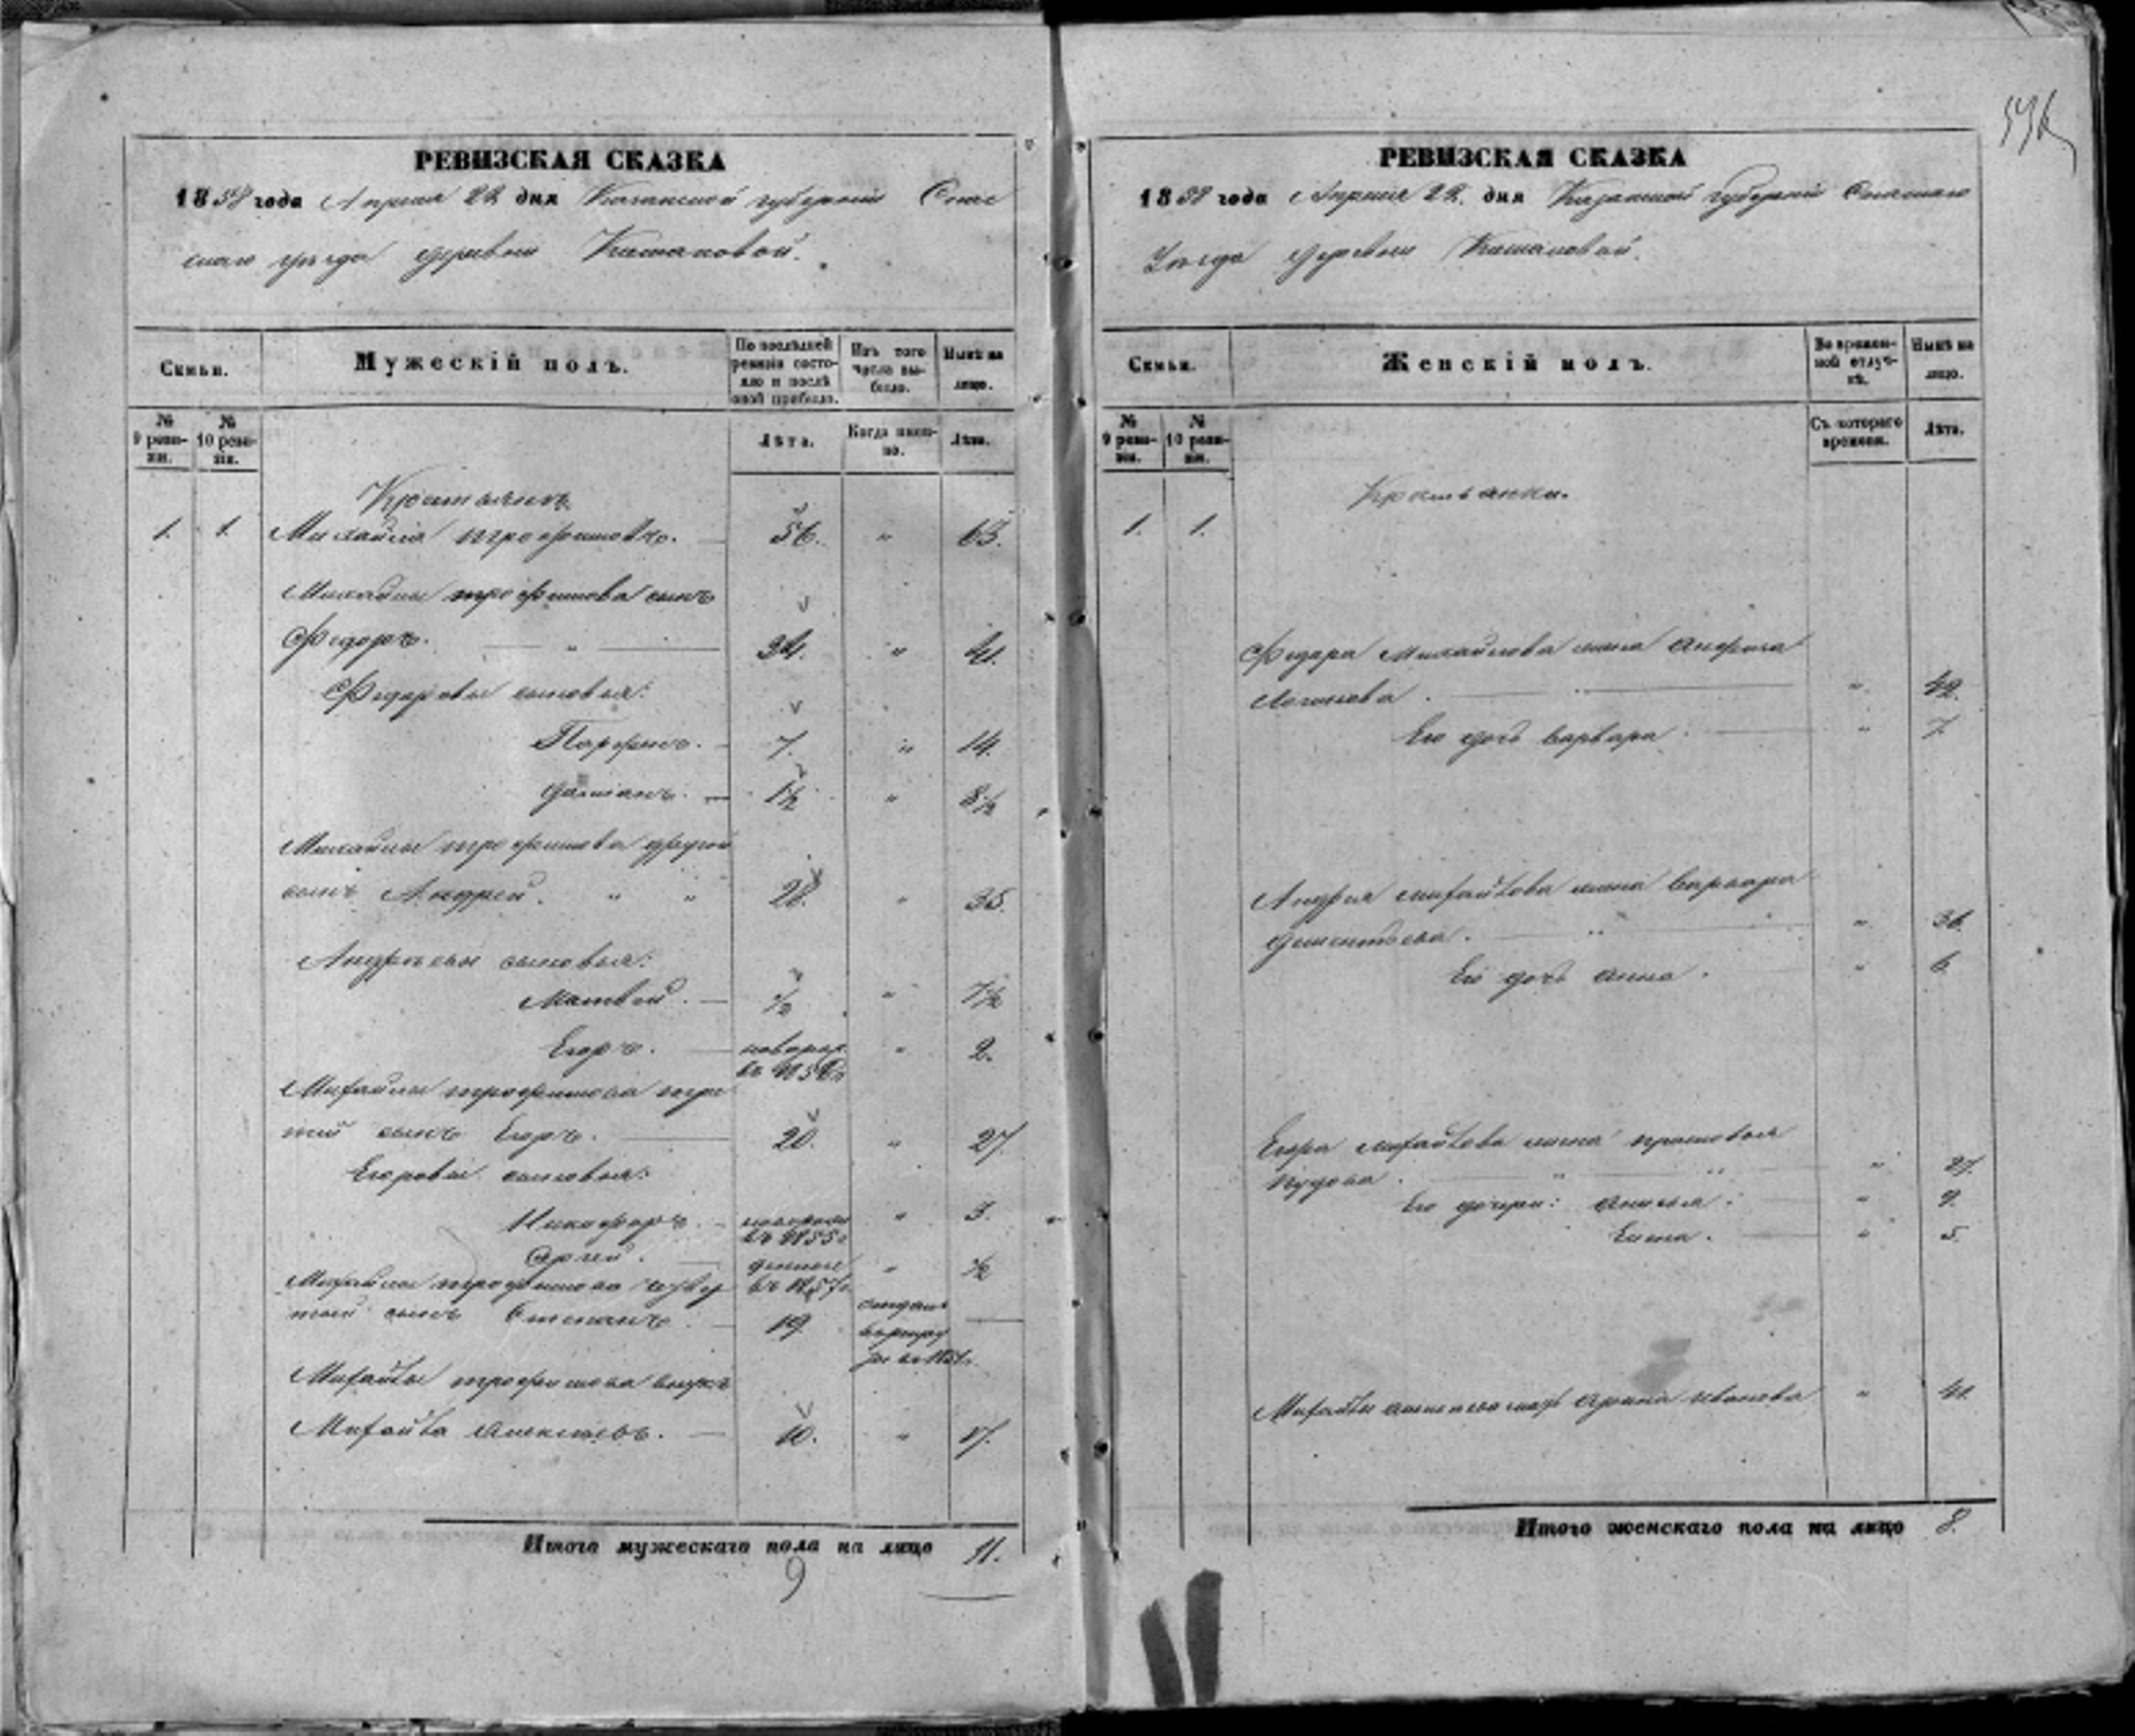 РЕВИЗСКАЯ СКАЗКА
1858 года Апреля 22 дня Казанской губернии Спас
скаго уезда деревни
Семьи.
Мужескій полъ.
По послѣдней ревизіи состояло и послѣ оной прибыло.
Изъ того числа выбыло.
Нынѣ на лицо.
№ 9 ревизіи.
№ 10 ревизіи.
Лѣта.
Когда имянно.
Лѣта.
Крестьянъ
1. 1. Михайла трофимовъ. 56. " 63.
Михайлы трофимова сынъ
Федоръ. " 34. " 41.
Федоровы сыновья:
Парфенъ. 7. " 14.
1½ " 8½
Михайлы трофимова другой
сынъ Андрей. " " 28. " 35.
Андреевы сыновья:
Матвей. ½ " 7½
Егоръ. новорож. " 2.
въ 1856г
Михайлы трофимова тре
тий сынъ Егоръ. 20. " 27.
Егоровы сыновья:
Никифоръ. " 3.
въ 1855г
Сергей. " ½
въ 1857г
Михайлы трофимова четвер
тый сынъ Степанъ. 19. отданъ
в рекру
ты въ 1851г.
Михайлы трофимова внукъ
Михайла Алексеевъ. 10. " 17.
Итого мужескаго пола на лицо 11.
9
РЕВИЗСКАЯ СКАЗКА
1858 года Апреля 22. дня Казанской губернии Спаскаго
Уезда деревни
Семьи.
Женскій полъ.
Во временной отлучкѣ.
Нынѣ на лицо.
№ 9 ревизіи.
№ 10 ревизіи.
Съ котораго времени.
Лѣта.
Крестьянки.
1. 1.
Федора Михайлова жена
Логинова. " " 42.
Его дочь варвара. " 7.
Андрея михайлова жена варвара
" " 36.
Его дочь анна. " 6.
Егора михайлова жена прасковья
" " " 27.
Его дочери: 9.
" 5.
Михайлы алексеева мать арина иванова " 41.
Итого женскаго пола на лицо 8.